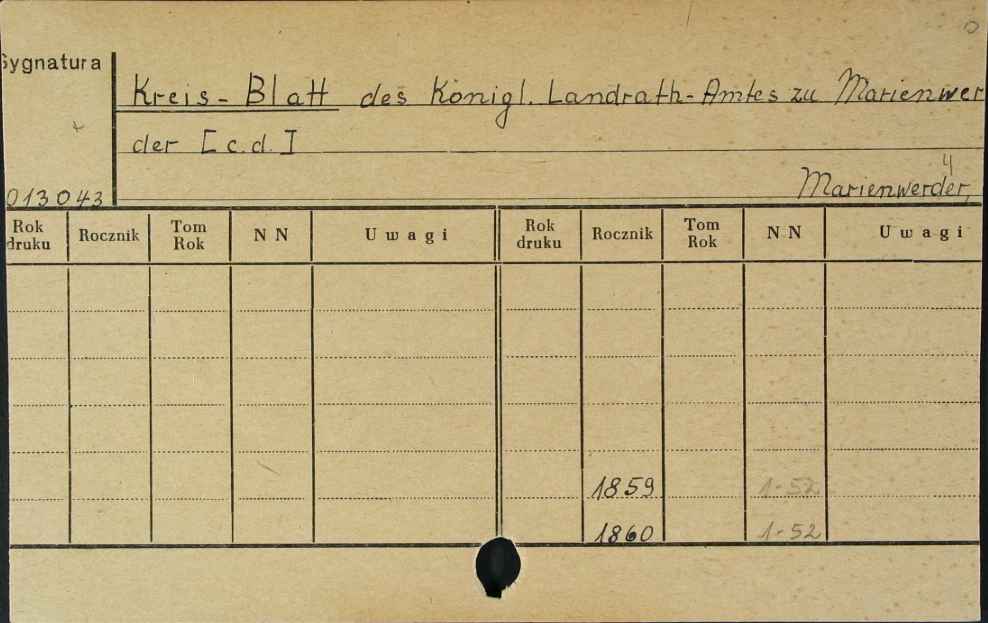 Sygnatura
Kreis-Blatt des Königl. Landrath-Amtes zu Marienwer
der [c.d.]
4
013043 Marienwerder,
Rok druku Rocznik Tom Rok NN Uwagi Rok druku Rocznik Tom Rok NN Uwagi
1859 1-52
1860 1-52